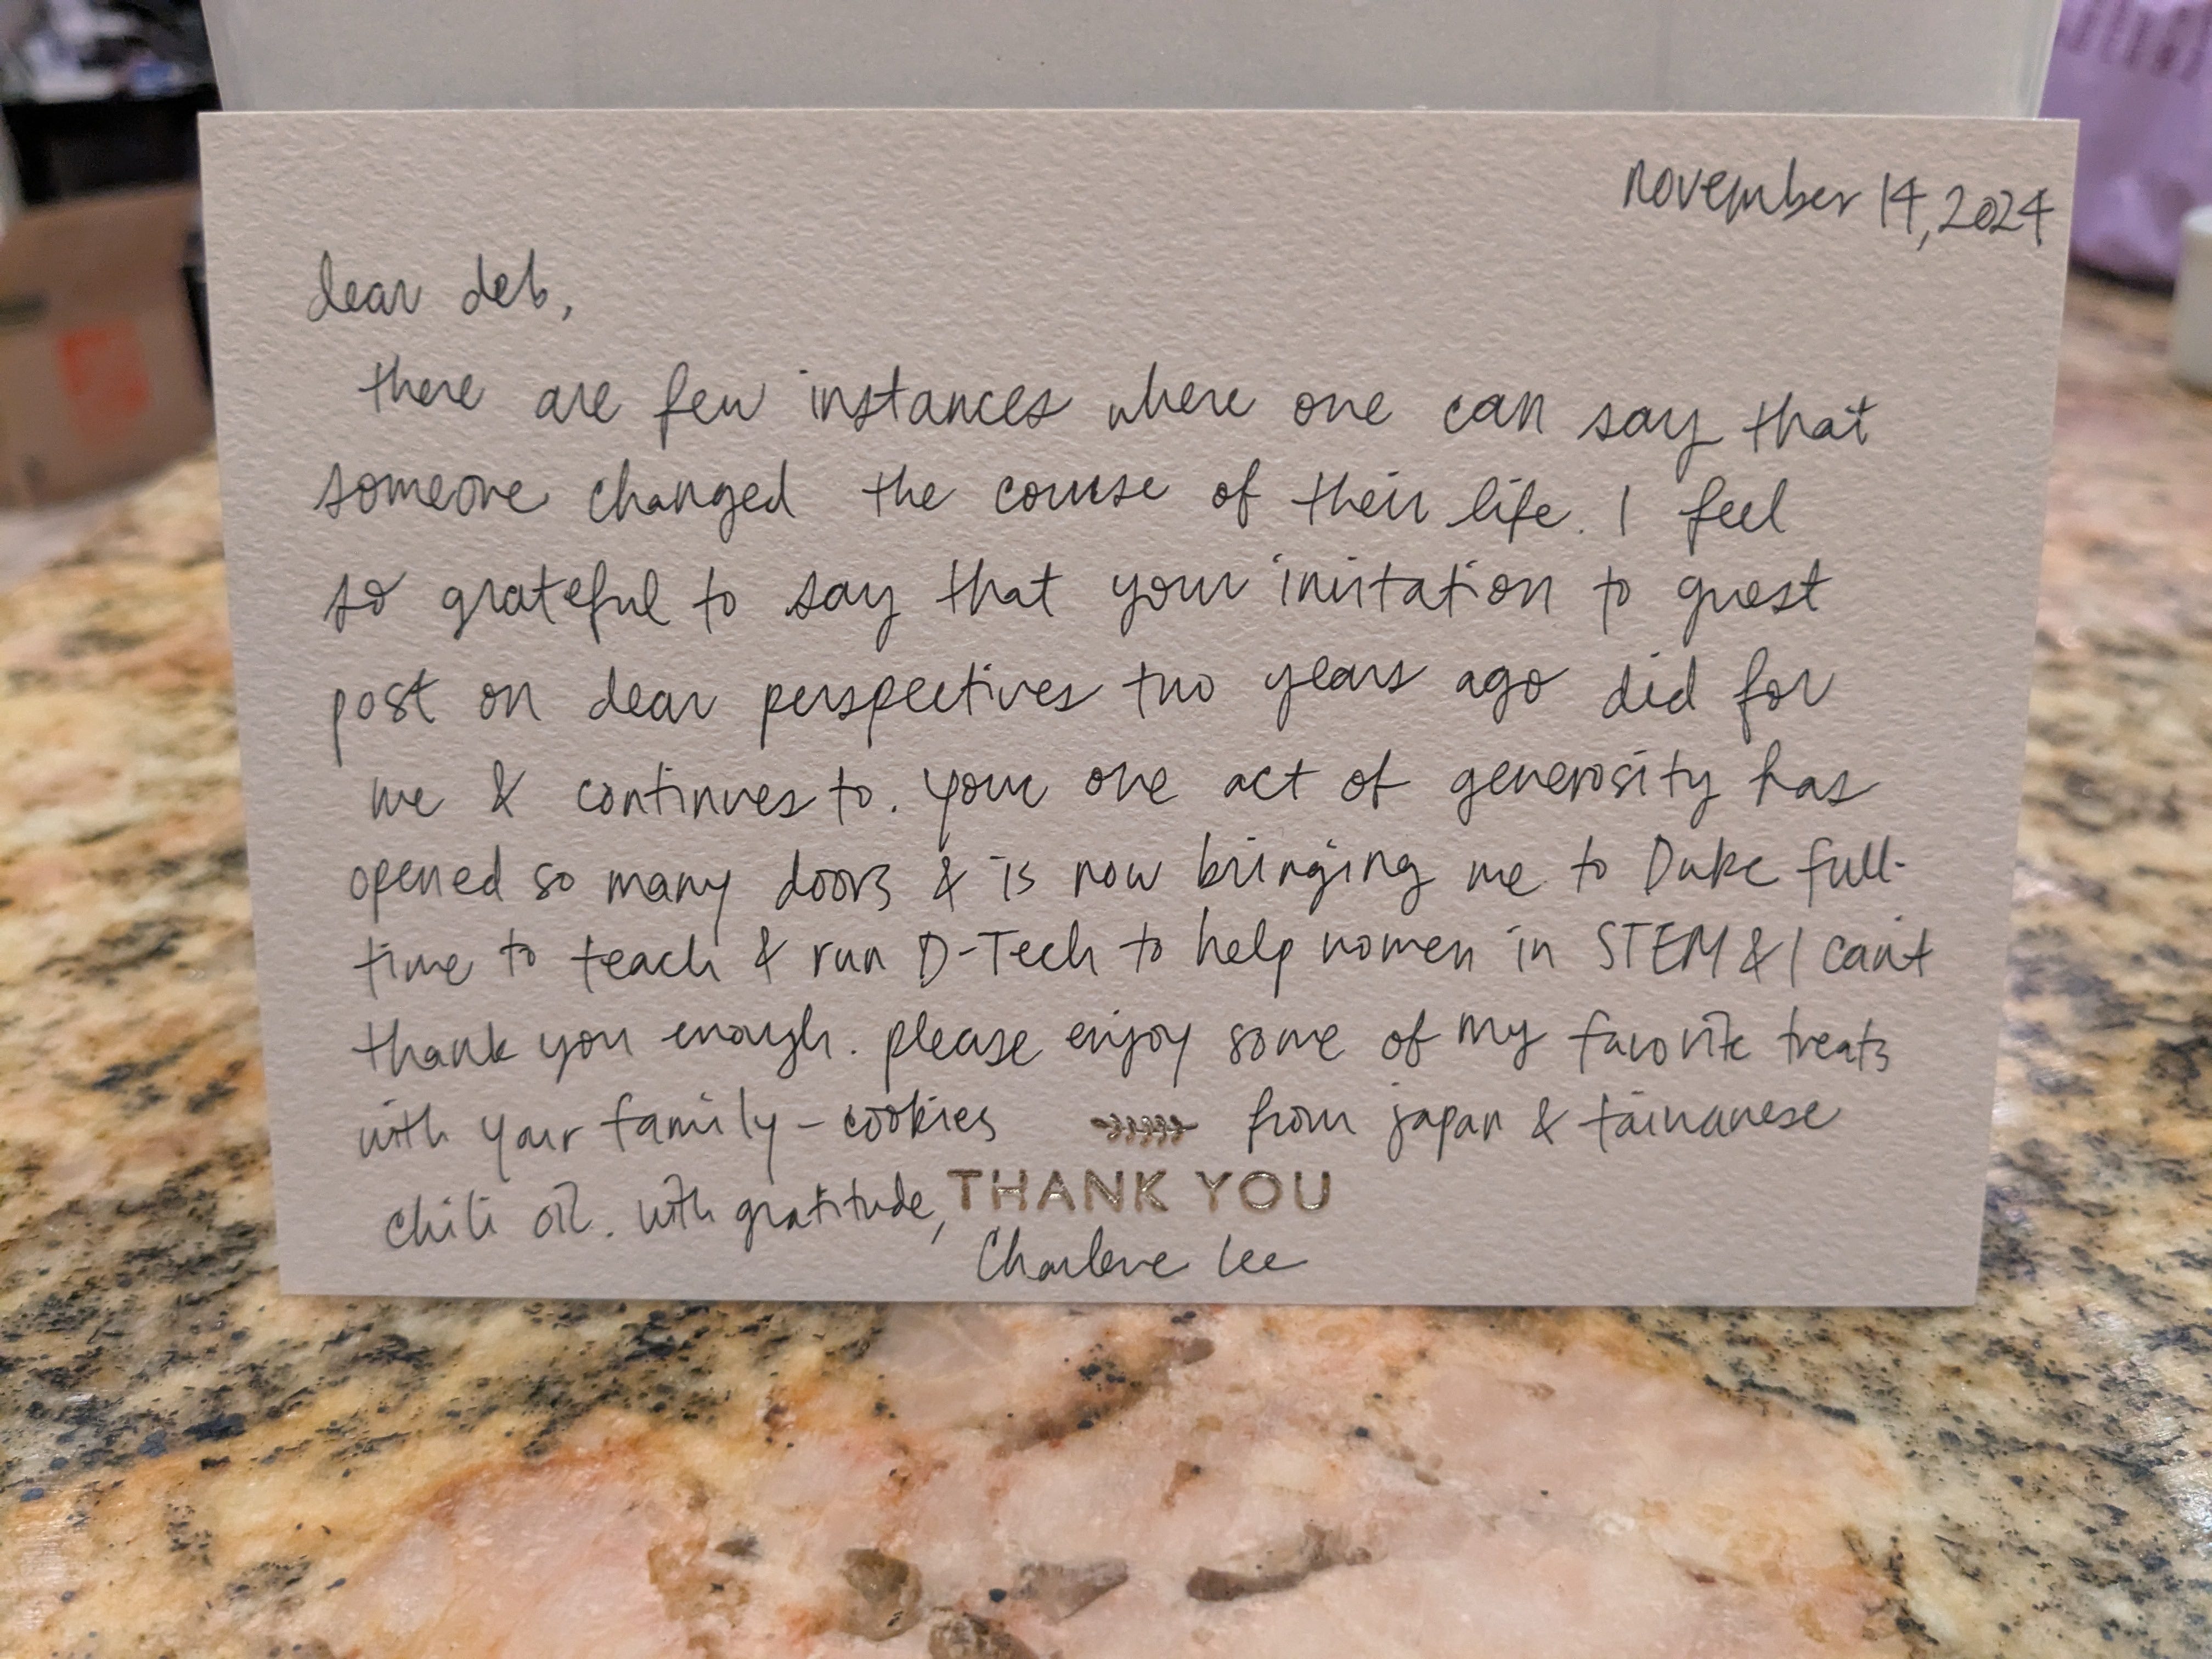 november 14, 2024
dear deb,
there are few instances where one can say that
someone changed the course of their life. I feel
so grateful to say that your invitation to guest
post on dear perspectives two years ago did for
me & continues to. your one act of generosity has
opened so many doors & is now bringing me to Duke full-
time to teach & run D-Tech to help women in STEM & I can't
thank you enough. please enjoy some of my favorite treats
with your family - cookies from japan & taiwanese
chili oil. with gratitude,
THANK YOU
Charlene Lee